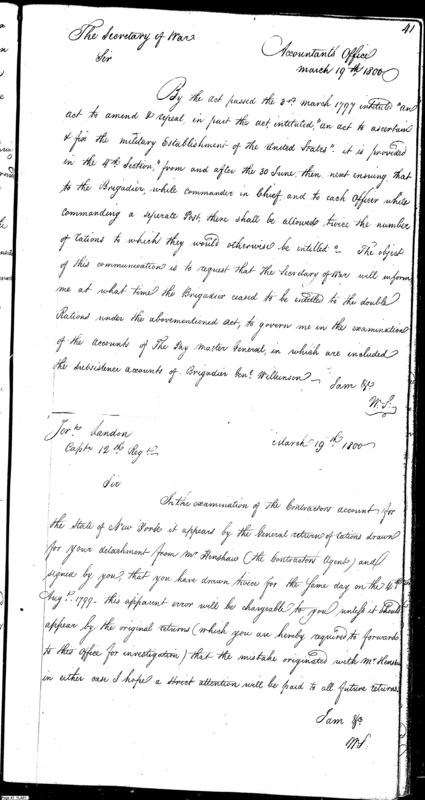 41
The Secretary of War
Accountants Office
Sir
March 19th 1800
By the act passed the 3rd March 1797 intituled "an
act to amend & repeal, in part the act, intituled, "an act to ascertain
& fix the military Establishment of the United States". it is provided
in the 4th Section, "from and after the 30 June, then, next ensuing, that
to the Brigadier, while commander in Chief, and to each Officer while
commanding a seperate Post, there shall be allowed, twice the number
of rations to which they would otherwise be entitled"- The object
of this communication is to request that the Secretary of War will inform
me at what time the Brigadier ceased to be entitled to the double
Rations under the abovementioned act, to govern me in the examination
of the accounts of The Pay Master General, in which are included
the subsistence accounts of Brigadier Genl Wilkinson-
I am &c
W.S.
Landon
March 19th 1800
Captn 12th Regt
Sir
In the examination of the Contractors account for
the State of New York it appears by the General return of rations drawn
for your detachment from Mr Henshaw (the Contractors Agent) and
signed by you, that you have drawn twice for the same day on the
Augt 1799 - this apparent error will be chargeable to you unless it should
appear by the original returns (which you are hereby required, to forward
to this Office for investigation) that the mistake originated with Mr Henshaw
in either case I hope a strict attention will be paid to all future returns
I am &c
W.S.